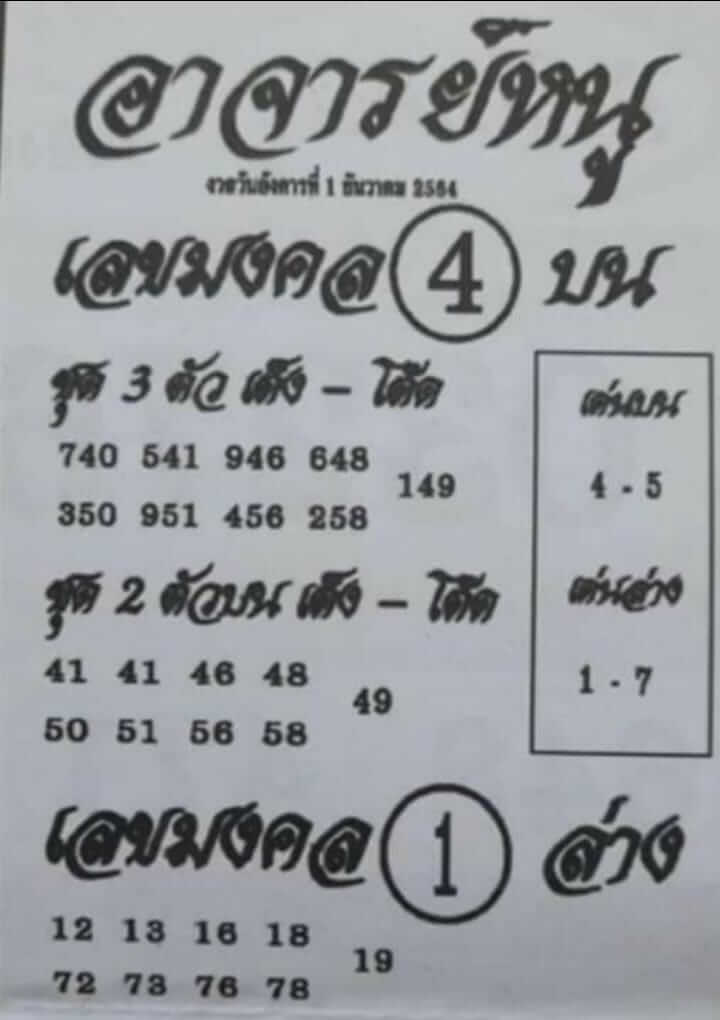 อาจารย์หนู
งวดวันอังคารที่ 1 ธันวาคม 2564
เลขมงคล 4 บน
ชุด 3 ตัว เต็ง - โต๊ด
740 541 946 648
149
350 951 456 258
เด่นบน
4 - 5
ชุด 2 ตัวบน เต็ง - โต๊ด
41 41 46 48
49
50 51 56 58
เด่นล่าง
1 - 7
เลขมงคล 1 ล่าง
12 13 16 18
19
72 73 76 78